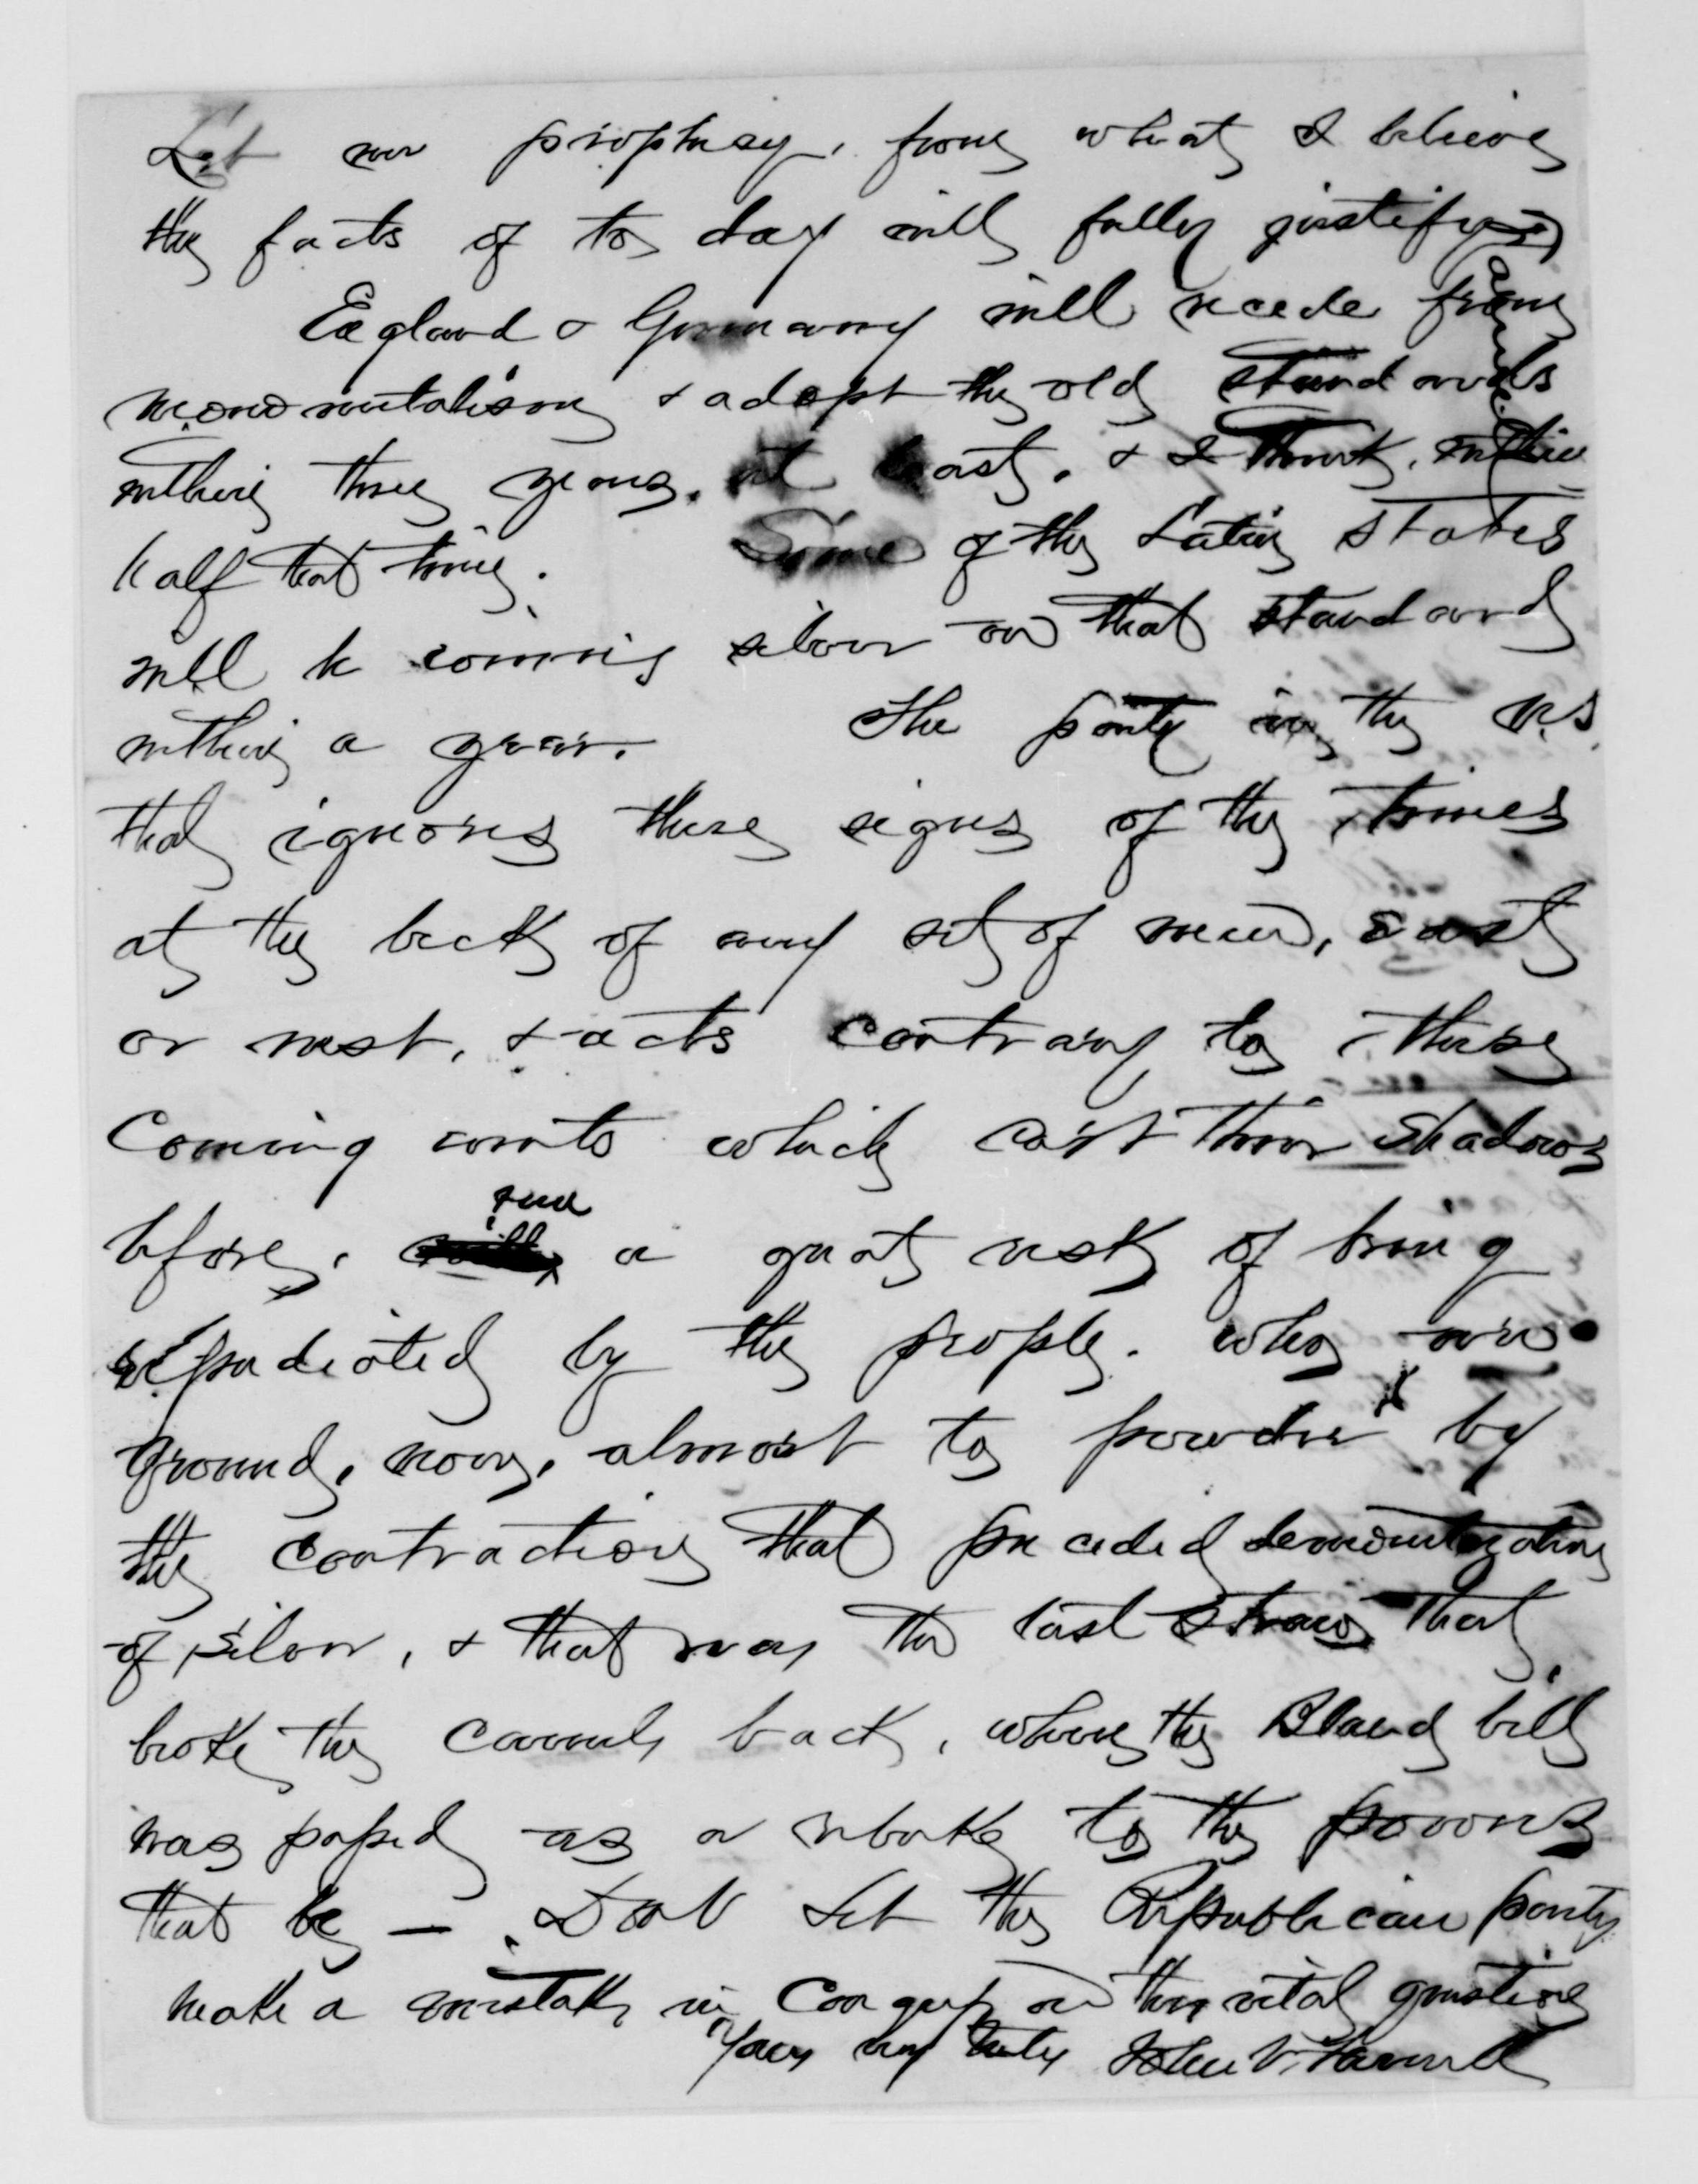 Let me prophesy, from what I believe
the facts of to day will fully justify
England & Germany will recede from
monometalism & adopt the old standards
within three years, at least, & I think, within
half that time. Some of the Latin States
will be coining silver on that standard
within a year. The party in the U.S.
that ignores these signs of the times
at the beck of any set of men, east
or west, & acts contrary to these
Coming events which cast their shadows
before, run a great risk of being
repudiated by the people. who are
ground, now, almost to powder by
the contraction that preceded demonitization
of silver, & that was the last straw that
broke the camels back, when the Bland bill
was passed as a rebuke to the powers
that be — Dont let the Republican party
make a mistake in Congress on this vital question
Yours very truly John V. Farwell